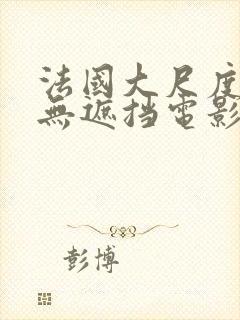 法國大尺度
無遮挡電影
彭博